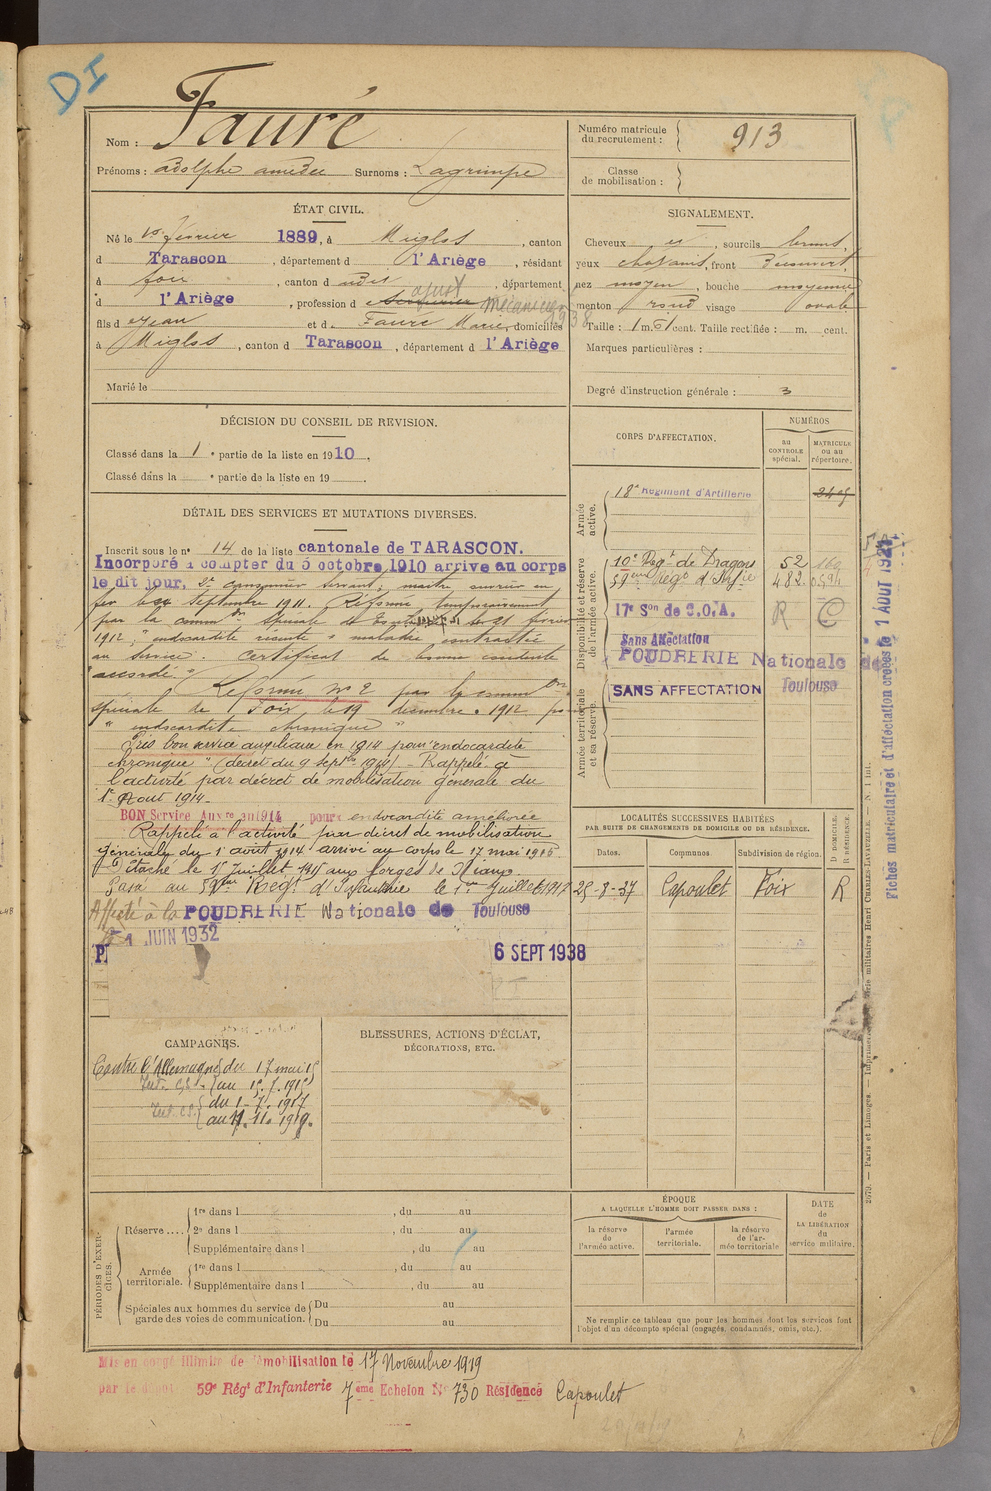 DI
Nom : Fauré
Prénoms : adolphe amédée Surnoms : Lagrimpe
Numéro matricule du recrutement : 913
Classe de mobilisation :
ÉTAT CIVIL.
Né le février 1889, à Miglos, canton
d Tarascon, département d l'Ariège, résidant
à foix, canton d udit, département
d l'Ariège, profession d ajust mécanicien
1938
fils d e Jean et d. Fauré Marie, domiciliés
à Miglos, canton d Tarascon, département d l'Ariège
Marié le
SIGNALEMENT.
Cheveux , sourcils bruns,
yeux chatains, front découvert,
nez moyen, bouche moyenne
menton rond visage ovale
Taille : 1 m. 61 cent. Taille rectifiée : m. cent.
Marques particulières :
Degré d'instruction générale : 3
DÉCISION DU CONSEIL DE REVISION.
Classé dans la 1e partie de la liste en 1910.
Classé dans la e partie de la liste en 19 .
DÉTAIL DES SERVICES ET MUTATIONS DIVERSES.
Inscrit sous le n° 14 de la liste cantonale de TARASCON.
Incorporé à compter du 5 octobre 1910 arrive au corps
le dit jour, 2e canonnier servant; maitre ouvrier en
fer le 24 Septembre 1911. Réformé temporairement
par la common spéciale de le 21 février
1912, "endocardite récente" maladie contractée
au service. Certificat de bonne conduite
"accordé."
Réformé n° 2 par la common
spéciale de Foix le 19 décembre 1912 pour
"endocardite chronique"
Pris bon service auxiliaire en 1914 pour "endocardite
chronique" (décret du 9 septbre 1914) - Rappelé à
l'activité par décret de mobilisation générale du
1er Aout 1914.
BON Service Auxre en 1914 pour endocardite améliorée
Rappelé à l'activité par décret de mobilisation
générale du 1er août 1914 arrivé au corps le 17 mai 1915
Détaché le 15 Juillet 1915 aux forges de
Passé au 59ème Regt d'Infanterie le 1er Juillet 1917
Affecté à la POUDRERIE Nationale de Toulouse
1 JUIN 1932
6 SEPT 1938
CORPS D'AFFECTATION.
NUMÉROS
au CONTROLE spécial.
MATRICULE ou au répertoire.
Armée active.
18e Régiment d'Artillerie
Disponibilité et réserve de l'armée active.
10e Regt de Dragons 52
59ème Rég. d'Inf.ie 482
17e Son de C.O.A. R C
Sans Affectation
POUDRERIE Nationale de
Toulouse
Armée territoriale et sa réserve.
SANS AFFECTATION
LOCALITÉS SUCCESSIVES HABITÉES
PAR SUITE DE CHANGEMENTS DE DOMICILE OU DE RÉSIDENCE.
Dates. Communes. Subdivision de région. D DOMICILE. R RÉSIDENCE.
25-8-37 Capoulet Foix R
CAMPAGNES.
Contre l'Allemagne du 17 mai 15
au 15.7.1915
du 1-7.1917
au 11.11.1919.
BLESSURES, ACTIONS D'ÉCLAT,
DÉCORATIONS, ETC.
PÉRIODES D'EXERCICES.
Réserve....
1re dans l , du au
2e dans l , du au
Supplémentaire dans l , du au
Armée territoriale.
1re dans l , du au
Supplémentaire dans l , du au
Spéciales aux hommes du service de garde des voies de communication.
Du au
Du au
ÉPOQUE
A LAQUELLE L'HOMME DOIT PASSER DANS :
la réserve de l'armée active.
l'armée territoriale.
la réserve de l'armée territoriale
DATE de LA LIBÉRATION du service militaire.
Ne remplir ce tableau que pour les hommes dont les services font
l'objet d'un décompte spécial (engagés, condamnés, omis, etc.).
Mis en congé illimité de démobilisation le 17 Novembre 1919
par le dépôt 59e Régt d'Infanterie 7ème Echelon N° 730 Résidence Capoulet
Fiches matriculaire et d'affectation créées le 1 AOUT 192
2079. — Paris et Limoges. — Imprimerie militaires Henri CHARLES-LAVAUZELLE. — N. 1 int.